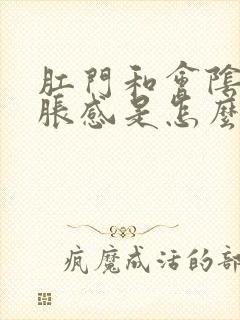 肛門和會陰
脹感是怎麼
瘋魔成活的部